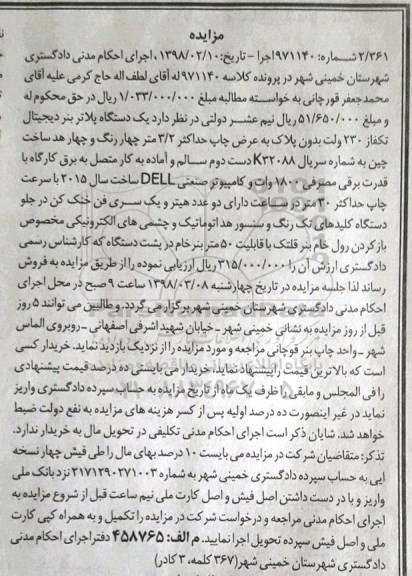 مزایده
۲/۳۶۱ شماره: ۹۷۱۱۴۰ اجرا - تاریخ: ۱۳۹۸/۰۲/۱۰، اجرای احکام مدنی دادگستری
شهرستان خمینی شهر در پرونده کلاسه ۹۷۱۱۴۰ له آقای لطف اله حاج کرمی علیه آقای
محمدجعفر قورچانی به خواسته مطالبه مبلغ ۱/۰۳۳/۰۰۰/۰۰۰ ریال در حق محکوم له
و مبلغ ۵۱/۶۵۰/۰۰۰ ریال نیم عشر دولتی در نظر دارد یک دستگاه پلاتر بنر دیجیتال
تکفاز ۲۳۰ ولت بدون پلاک به عرض چاپ حداکثر ۳/۲ متر چهار رنگ و چهار هد ساخت
چین به شماره سریال K۳۲۰۸۸ دست دوم سالم و آماده به کار متصل به برق کارگاه با
قدرت برقی مصرفی ۱۸۰۰ وات و کامپیوتر صنعتی DELL ساخت سال ۲۰۱۵ با سرعت
چاپ حداکثر ۳۰ متر در ساعت دارای دو عدد هیتر و یک سری فن خنک کن در جلو
دستگاه کلیدهای تک رنگ و سنسور هد اتوماتیک و چشمی های الکترونیکی مخصوص
باز کردن رول خام بنر فلتک با قابلیت ۵۰ متر بنر خام در پشت دستگاه که کارشناس رسمی
دادگستری ارزش آن را ۳۱۵/۰۰۰/۰۰۰ ریال ارزیابی نموده را از طریق مزایده به فروش
رساند لذا جلسه مزایده در تاریخ چهارشنبه ۱۳۹۸/۰۳/۰۸ ساعت ۹ صبح در محل اجرای
احکام مدنی دادگستری شهرستان خمینی شهر برگزار می گردد. و طالبین می توانند ۵ روز
قبل از روز مزایده به نشانی خمینی شهر - خیابان شهید اشرفی اصفهانی - روبروی الماس
شهر - واحد چاپ بنر قوچانی مراجعه و مورد مزایده را از نزدیک بازدید نماید. خریدار کسی
است که بالاترین قیمت را پیشنهاد نماید. خریدار می بایستی ده درصد قیمت پیشنهادی
را فی المجلس و مابقی را ظرف یک ماه از تاریخ مزایده به حساب سپرده دادگستری واریز
نماید در غیر اینصورت ده درصد اولیه پس از کسر هزینه های مزایده به نفع دولت ضبط
خواهد شد. شایان ذکر است اجرای احکام مدنی تکلیفی در تحویل مال به خریدار ندارد.
تذکر: متقاضیان شرکت در مزایده می بایست ۱۰ درصد بهای مال را طی فیش چهار نسخه
ایی به حساب سپرده دادگستری خمینی شهر به شماره ۲۱۷۱۲۹۰۲۷۱۰۰۳ نزد بانک ملی
واریز و با در دست داشتن اصل فیش و اصل کارت ملی نیم ساعت قبل از شروع مزایده به
اجرای احکام مدنی مراجعه و درخواست شرکت در مزایده را تکمیل و به همراه کپی کارت
ملی و اصل فیش سپرده تحویل اجرا نمایید. م الف: ۴۵۸۷۶۵ دفتر اجرای احکام مدنی
دادگستری شهرستان خمینی شهر (۳۶۷ کلمه، ۳ کادر)